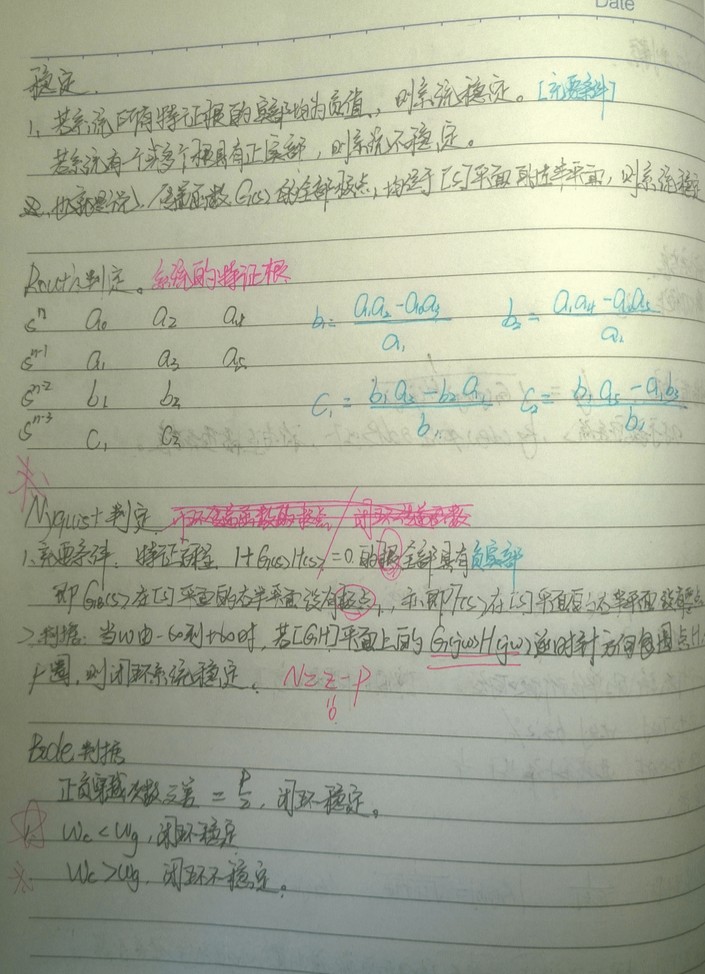 Date
稳定.
1. 若系统所有特征根的实部均为负值,则系统稳定。[充要条件]
若系统有一个或多个根具有正实部,则系统不稳定。
传递函数G(s)的全部极点,均位于[S]平面的左半平面,则系统稳定
Routh判定。系统的特征根
s^n a₀ a₂ a₄ b₁ = (a₁a₂-a₀a₃)/a₁ b₂ = (a₁a₄-a₀a₅)/a₁
s^{n-1} a₁ a₃ a₅
s^{n-2} b₁ b₂ c₁ = / b₁ c₂ = / b₁
s^{n-3} c₁ c₂
Nyquist判定 开环传递函数的极点/闭环传递函数
1. 充要条件: 特征方程 1+G(s)H(s)=0.的根全部具有负实部
即G_B(s)在[S]平面的右半平面没有极点,亦即F(s)在[S]平面右半平面没有零点
2. 判据: 当ω由-∞到+∞时,若[GH]平面上的G(jω)H(jω)逆时针方向包围点
P圈,则闭环系统稳定. N=z-P
0
Bode判据
正负穿越次数之差 = P/2, 闭环稳定。
ωc < ωg, 闭环稳定
ωc > ωg, 闭环不稳定。